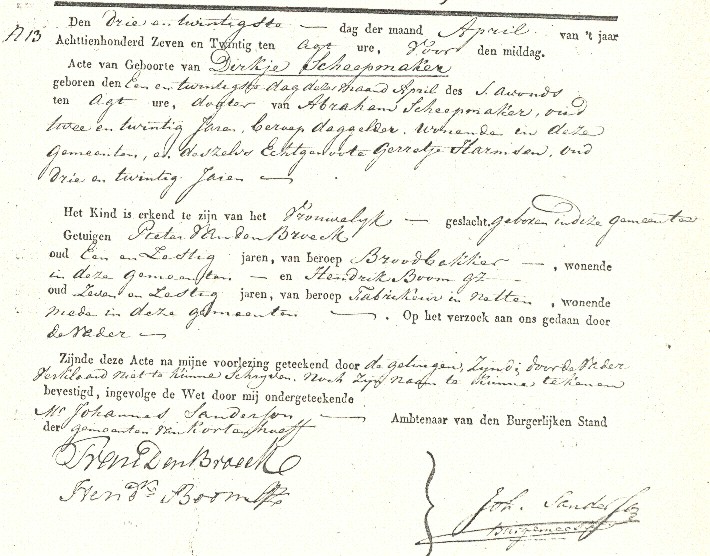 N 13
Den Drie en twintigste — dag der maand April van 't jaar
Achttienhonderd Zeven en Twintig ten Agt ure, Voor den middag.
Acte van Geboorte van Dirkje Scheepmaker
geboren den Een en twintigste dag dezer maand April des S. avonds
ten Agt ure, dogter van Abraham Scheepmaker, oud
twee en twintig Jaren, beroep daggelder, wonende in deze
gemeenten, en deszelvs Echtgenoote Gerretje Harmsen, oud
Drie en twintig Jaren —
Het Kind is erkend te zijn van het Vrouwelyk — geslacht. geboren in deze gemeenten
Getuigen Pieter Van den Broeck
oud Een en Zestig jaren, van beroep Broodbakker —, wonende
in deze gemeenten — en Hendrik Boom gz —
oud Zeven en Zestig jaren, van beroep Fabrikeur in netten, wonende
mede in deze gemeenten —. Op het verzoek aan ons gedaan door
de Vader —
Zijnde deze Acte na mijne voorlezing geteekend door de getuigen, Zynde door de Vader
Verklaard niet te kunne Schryven. Noch Zyn naam te kunne tekenen
bevestigd, ingevolge de Wet door mij ondergeteekende
Mr Johannes Sanderson — Ambtenaar van den Burgerlijken Stand
der gemeenten van Kortenhoeff
Den Broeck
Boom gz
Joh. Sanderson
Burgemeester